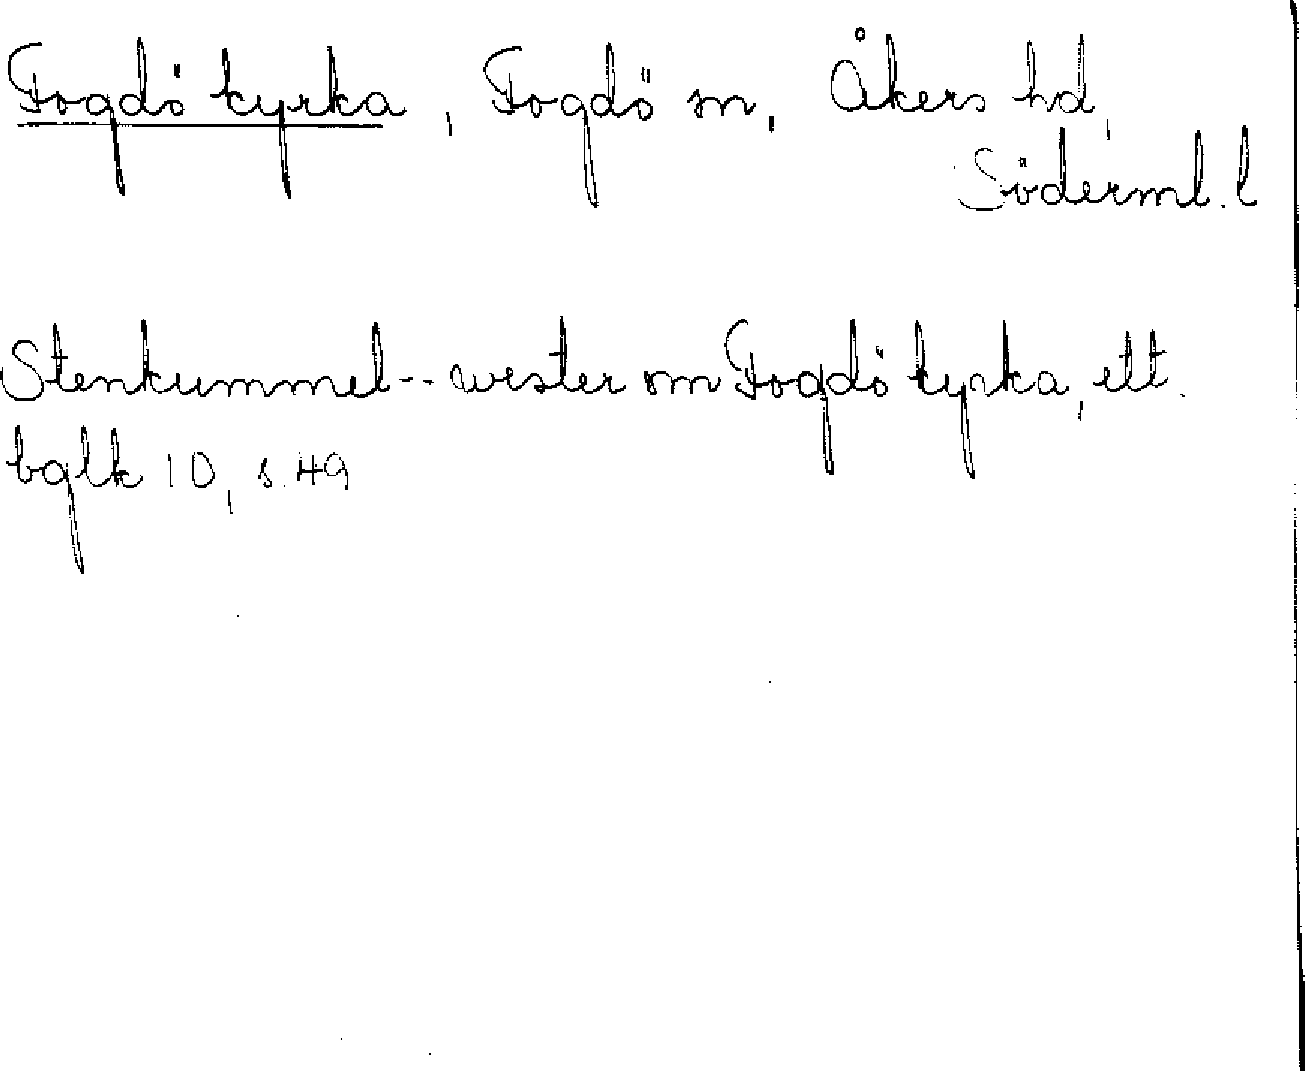 Fogdö kyrka, Fogdö sn, Åkers hd,
Söderml. l
Stenkummel -- wester om Fogdö kyrka, ett.
bglk 10, s. 49